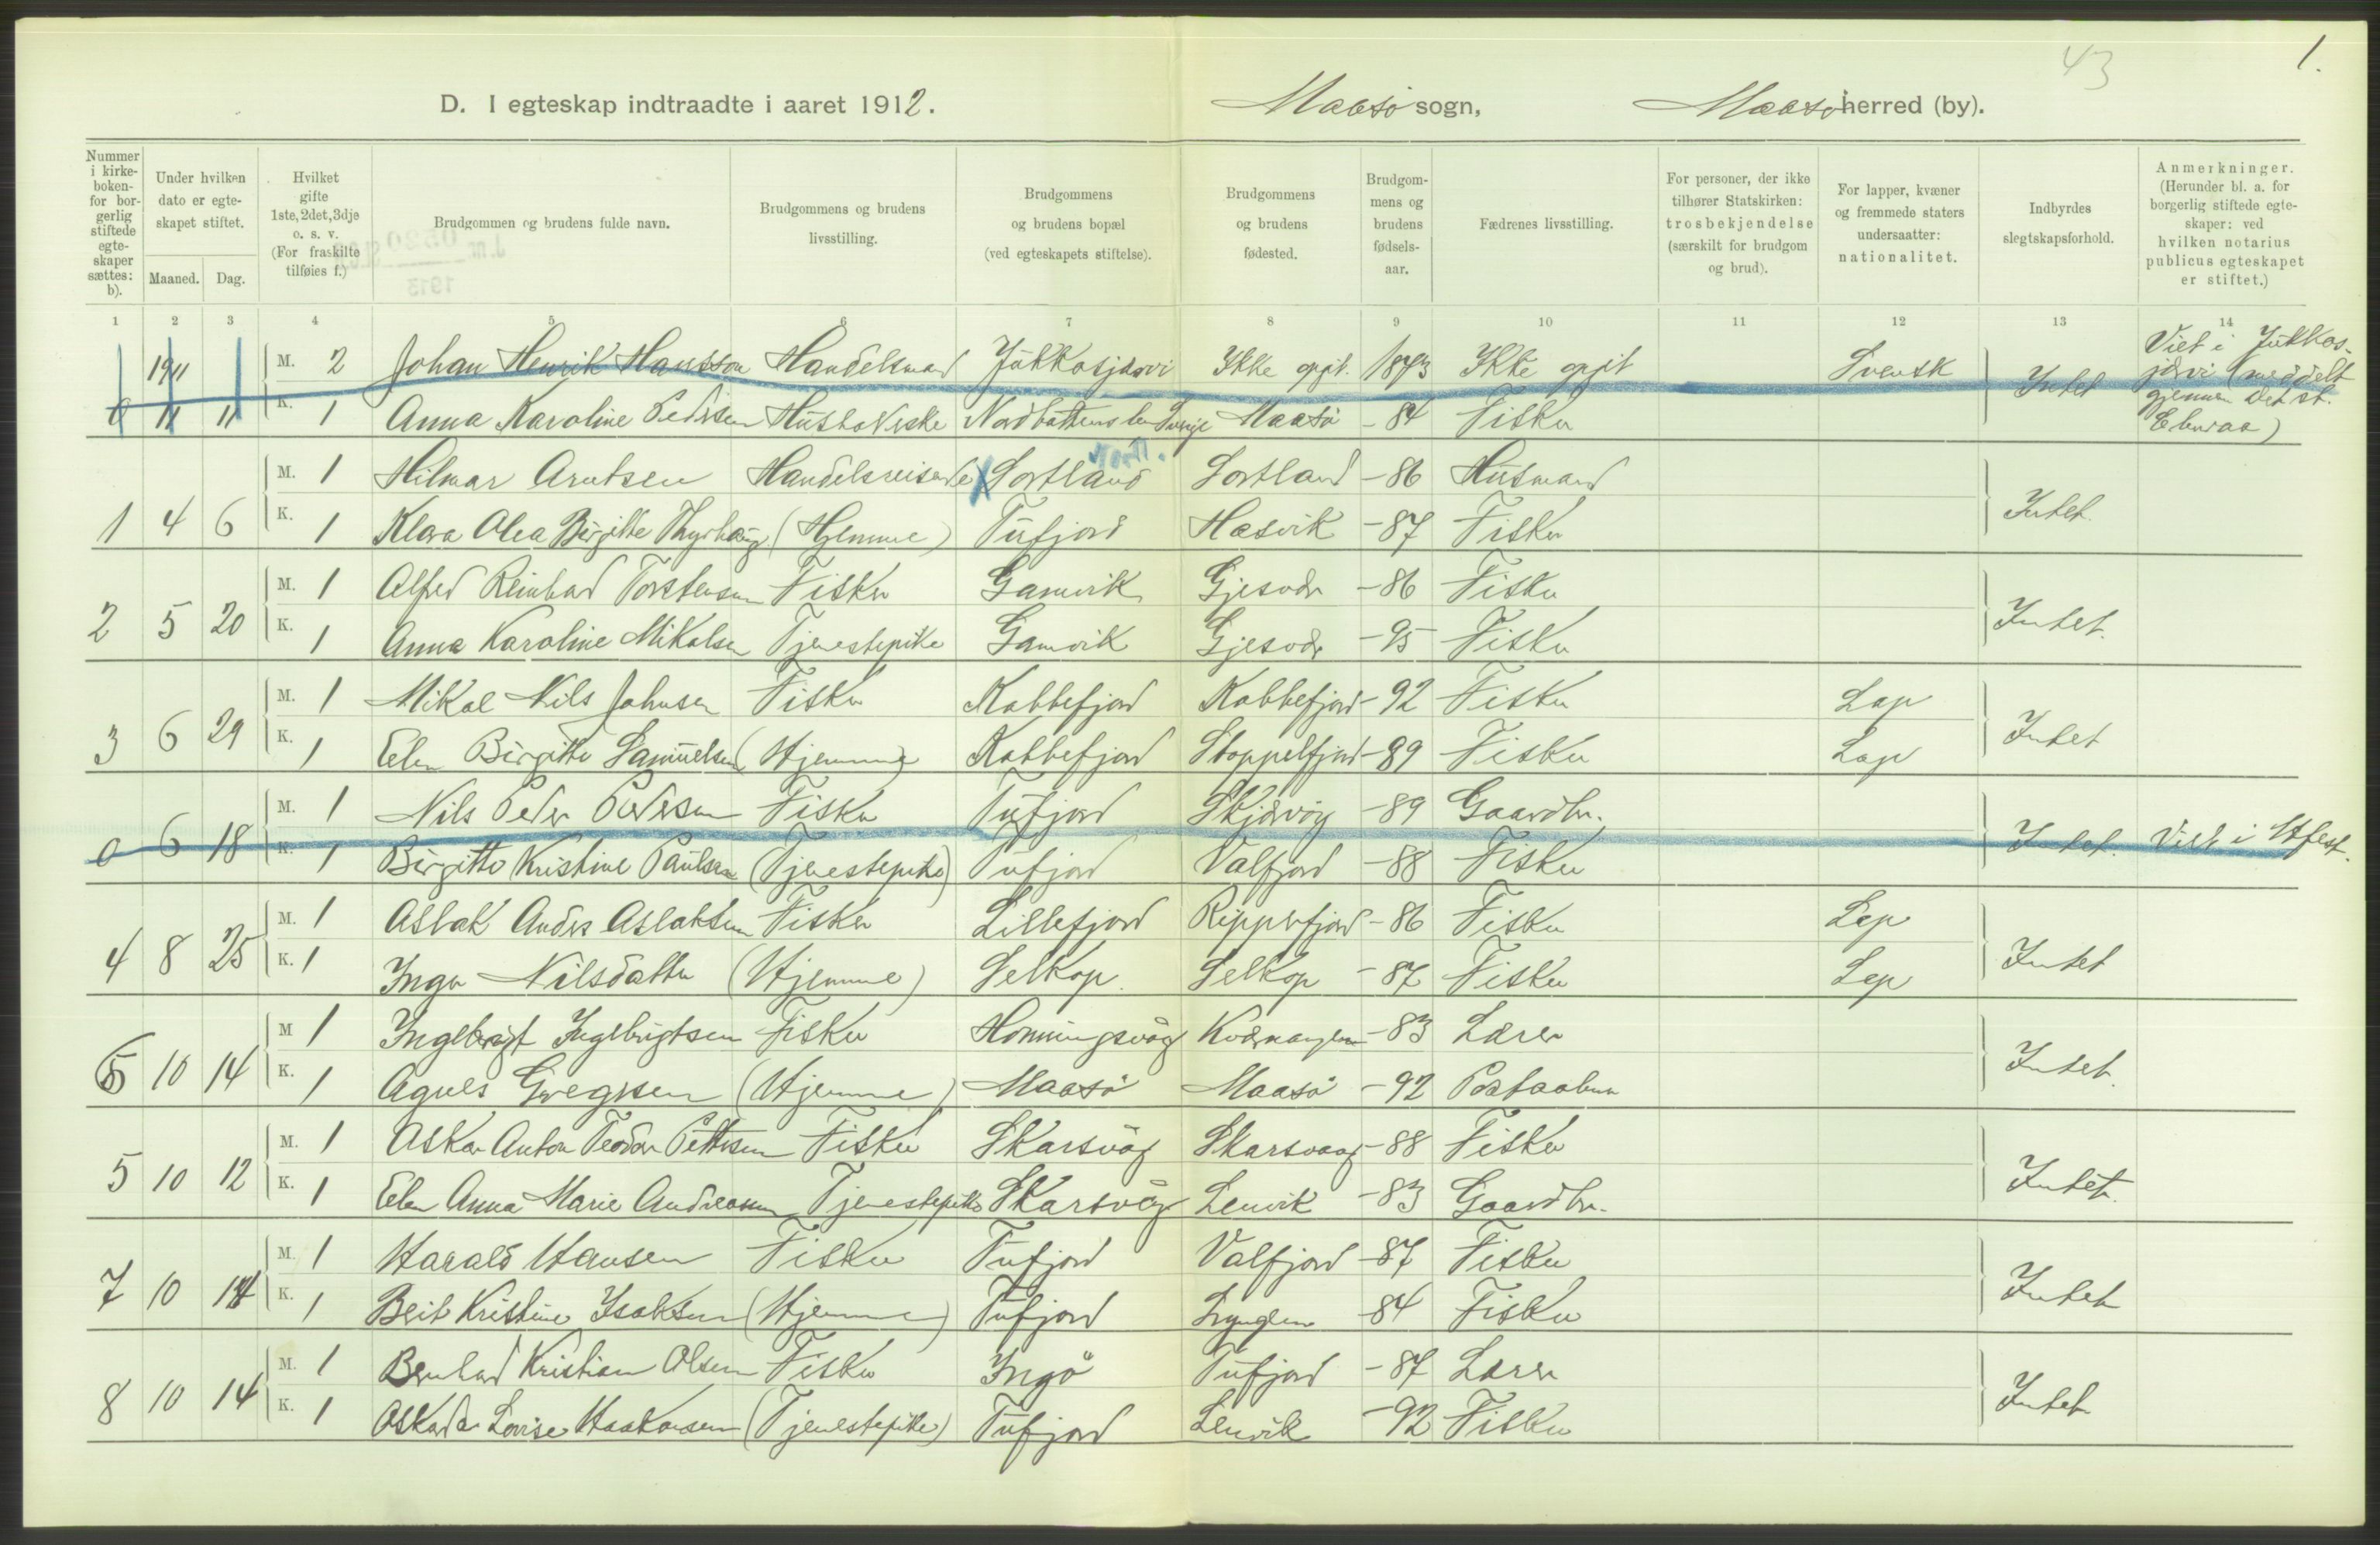 43
1.
D. I egteskap indtraadte i aaret 1912. Maasö sogn, Maasö herred (by).
Nummer i kirkeboken- for borgerlig stiftede egteskaper sættes: b).
Under hvilken dato er egteskapet stiftet.
Maaned. Dag.
Hvilket gifte 1ste, 2det, 3dje o. s. v. (For fraskilte tilføies f.)
Brudgommen og brudens fulde navn.
Brudgommens og brudens livsstilling.
Brudgommens og brudens bopæl (ved egteskapets stiftelse).
Brudgommens og brudens fødested.
Brudgommens og brudens fødselsaar.
Fædrenes livsstilling.
For personer, der ikke tilhører Statskirken: trosbekjendelse (særskilt for brudgom og brud).
For lapper, kvæner og fremmede staters undersaatter: nationalitet.
Indbyrdes slegtskapsforhold.
Anmerkninger. (Herunder bl. a. for borgerlig stiftede egteskaper: ved hvilken notarius publicus egteskapet er stiftet.)
1 2 3 4 5 6 7 8 9 10 11 12 13 14
1911 M. 2 Johan Henrik Hansson Handelsmand Jukkasjärvi Ikke opgit. 1873 Ikke opgit Svensk Intet Viet i Jukkasjärvi (meddelt gjennem det st.
0 11 11 K. 1 Anna Karoline Pedersen Husholderske Nordbottens len Sverige Maasö -84 Fisker
M. 1 Hilmar Arntsen Handelsreisende Sortland Nordl. Sortland -86 Husmand
1 4 6 K. 1 Klara Olea Birgitte (Hjemme) Tufjord Hasvik -87 Fisker Intet.
M. 1 Alfred Reinhard Torstensen Fisker Gamvik Gjesvær -86 Fisker
2 5 20 K. 1 Anna Karoline Mikalsen Tjenestepike Gamvik Gjesvær -95 Fisker Intet.
M. 1 Mikal Nils Johnsen Fisker Kobbefjord Kobbefjord -92 Fisker Lap
3 6 29 K. 1 Elen Birgitte Samuelsen (Hjemme) Kobbefjord Stoppelfjord -89 Fisker Lap Intet
M. 1 Nils Peder Pedersen Fisker Tufjord Skjervöy -89 Gaardbr.
0 6 18 K. 1 Birgitte Kristine Paulsen (Tjenestepike) Tufjord Valfjord -88 Fisker Intet. Viet i Hfest.
M. 1 Aslak Anders Aslaksen Fisker Lillefjord Repperfjord -86 Fisker Lap
4 8 25 K. 1 Inga Nilsdatter (Hjemme) Selkop. Selkop -87 Fisker Lap Intet
M 1 Ingebrigt Ingebrigtsen Fisker Honningsvåg Kvænangen -83 Lærer
6 10 14 K. 1 Agnes Gregersen (Hjemme) Maasö Maasö -92 Postaabner Intet.
M. 1 Oskar Anton Teodor Pettersen Fisker Skarsvåg Skarsvaag -88 Fisker
5 10 12 K. 1 Elen Anna Marie Andreassen Tjenestepike Skarsvåg Lenvik -83 Gaardbr. Intet.
M. 1 Harald Hansen Fisker Tufjord Valfjord -87 Fisker
7 10 14 K. 1 Berit Kristine Isaksen (Hjemme) Tufjord Lyngen -84 Fisker Intet
M. 1 Bernhard Kristian Olsen Fisker Ingö Tufjord -87 Lærer
8 10 14 K. 1 Oskarda Lovise Haakonsen (Tjenestepike) Tufjord Lenvik -92 Fisker Intet